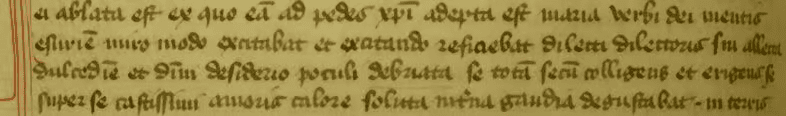 ei ablata est ex quo eā ad pedes xp̄i adepta est maria verbi dei mentis
esuriē miro modo excitabat et excitando reficiebat dilecti dilectoris sui allecta
dulcedīe et dīui desiderio poculi debriata se totā secū colligens et erigens se
super se castissimi amoris calore soluta int̄na gaudia degustabat · in terris